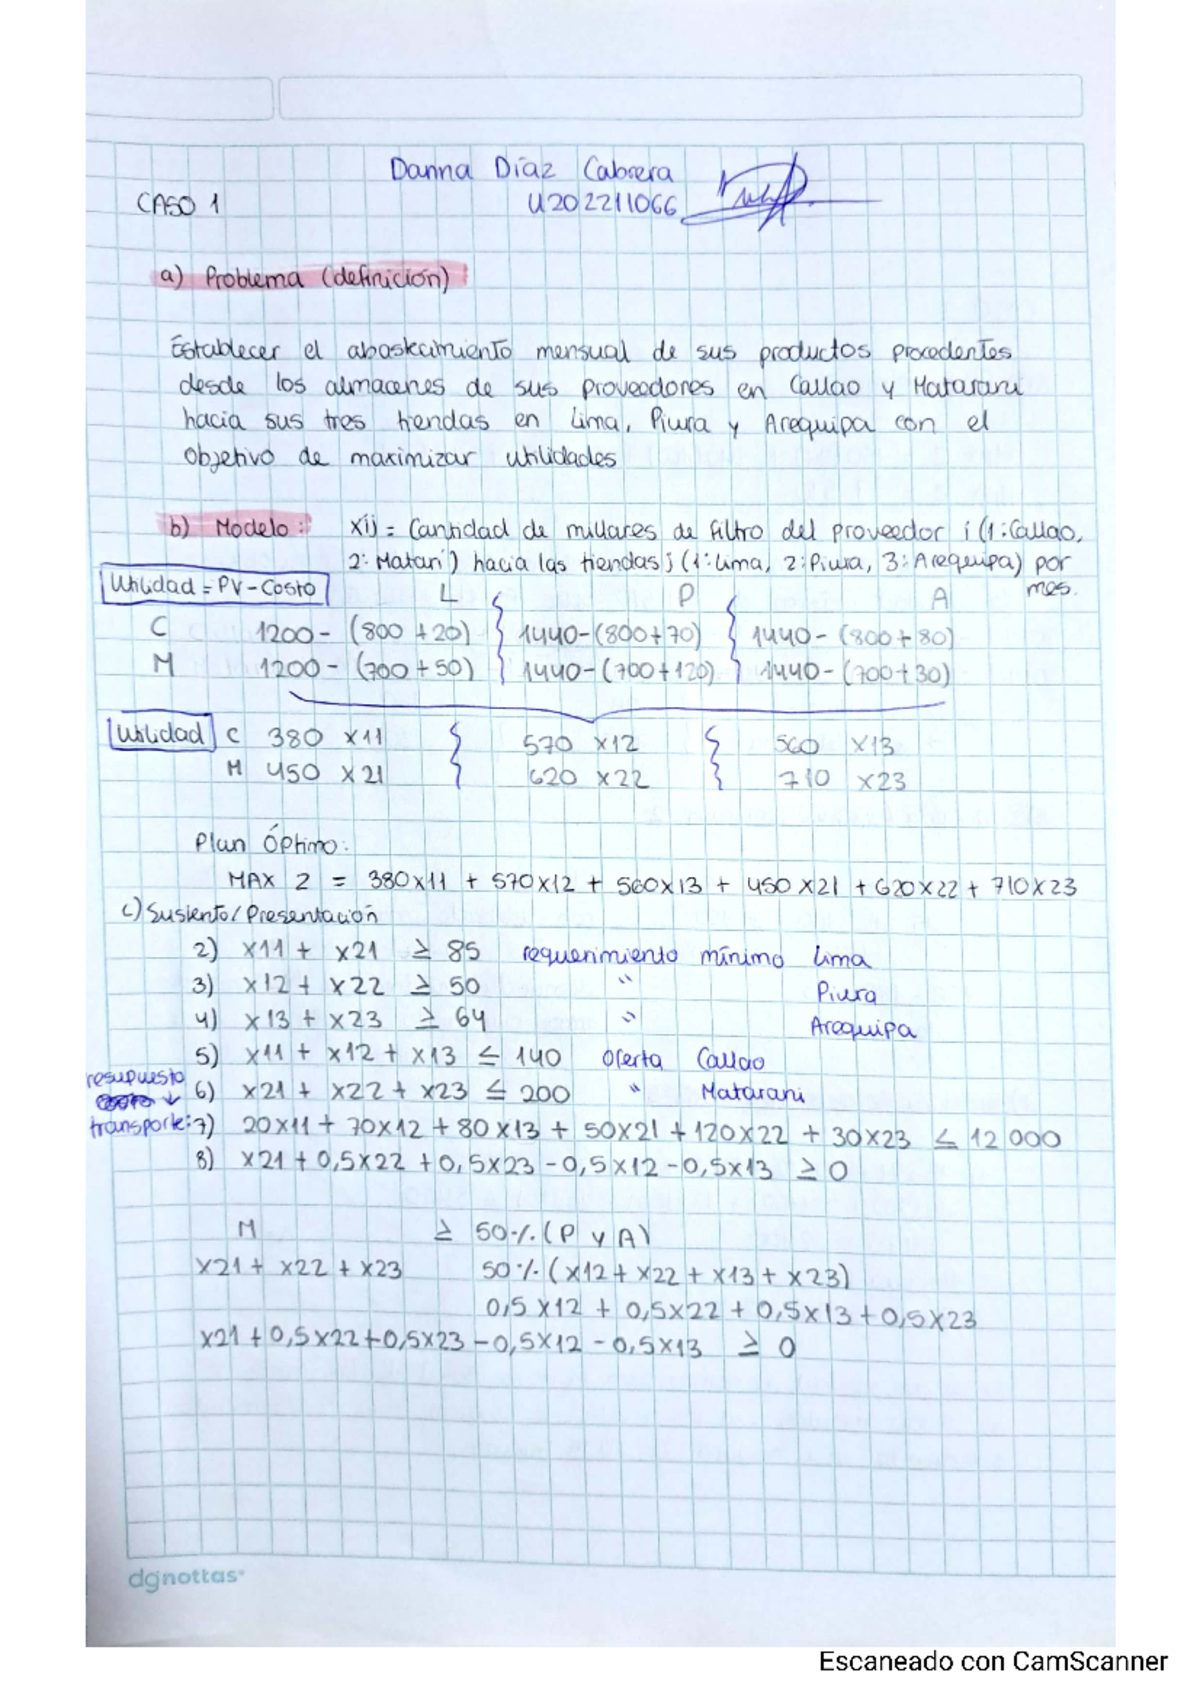 Danna Díaz Cabrera
CASO 1 U202211066
a) Problema (definición)
Establecer el abastecimiento mensual de sus productos procedentes
desde los almacenes de sus proveedores en Callao y Matarani
hacia sus tres tiendas en Lima, Piura y Arequipa con el
objetivo de maximizar utilidades
b) Modelo: xij = Cantidad de millares de filtro del proveedor i (1:Callao,
2: Matari) hacia las tiendas j (1:Lima, 2:Piura, 3:Arequipa) por
mes.
Utilidad = PV - Costo L P A
C 1200 - (800 + 20) 1440-(800+70) 1440 - (800 + 80)
M 1200 - (700 + 50) 1440 - (700+120) 1440 - (700+30)
Utilidad C 380 x11 570 x12 560 x13
M 450 x21 620 x22 710 x23
Plan Óptimo:
MAX Z = 380x11 + 570x12 + 560x13 + 450x21 + 620x22 + 710x23
c) Sustento/Presentación
2) x11 + x21 ≥ 85 requerimiento mínimo Lima
3) x12 + x22 ≥ 50 " Piura
4) x13 + x23 ≥ 64 " Arequipa
5) x11 + x12 + x13 ≤ 140 Oferta Callao
6) x21 + x22 + x23 ≤ 200 " Matarani
resupuesto
transporte: 7) 20x11 + 70x12 + 80x13 + 50x21 + 120x22 + 30x23 ≤ 12 000
8) x21 + 0,5x22 + 0,5x23 - 0,5x12 - 0,5x13 ≥ 0
M ≥ 50% (P y A)
x21 + x22 + x23 50% (x12 + x22 + x13 + x23)
0,5x12 + 0,5x22 + 0,5x13 + 0,5x23
x21 + 0,5x22 + 0,5x23 - 0,5x12 - 0,5x13 ≥ 0
dgnottas
Escaneado con CamScanner